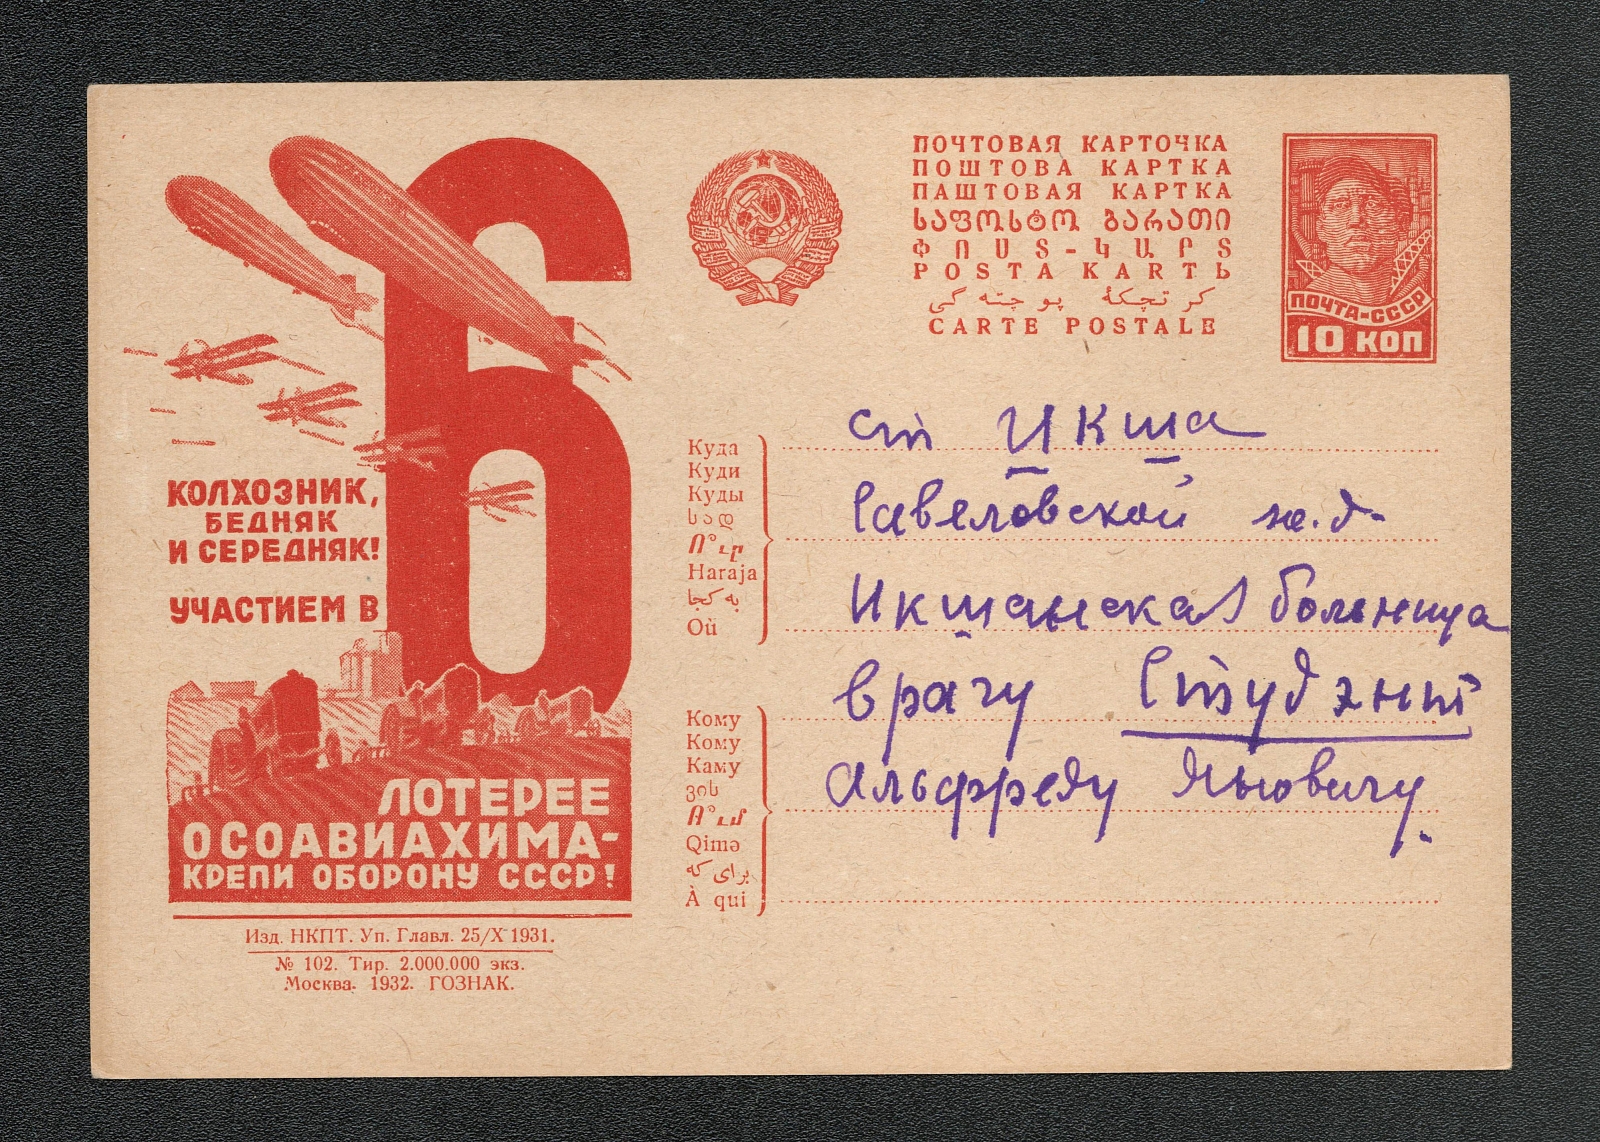 КОЛХОЗНИК,
БЕДНЯК
И СЕРЕДНЯК!
УЧАСТИЕМ В
6
ЛОТЕРЕЕ
ОСОАВИАХИМА-
КРЕПИ ОБОРОНУ СССР!
Изд. НКПТ. Уп. Главл. 25/X 1931.
№ 102. Тир. 2.000.000 экз.
Москва. 1932. ГОЗНАК.
ПОЧТОВАЯ КАРТОЧКА
ПОШТОВА КАРТКА
ПАШТОВАЯ КАРТКА
ᲡᲐᲤᲝᲡᲢᲝ ᲑᲐᲠᲐᲗᲘ
ՓՈՍՏ-ԿԱՐՏ
POSTA KARTЬ
کرتچکهٔ پوچتهگی
CARTE POSTALE
ПОЧТА-СССР
10 КОП
Куда
Куди
Куды
სად
Ո՞ւր
Haraja
به کجا
Où
Кому
Кому
Каму
ვის
Ո՞ւմ
Qimə
برای که
À qui
ст Икша
Савеловской ж.д.
Икшанская больница
врачу Студэнт
Альфреду Яльовичу.